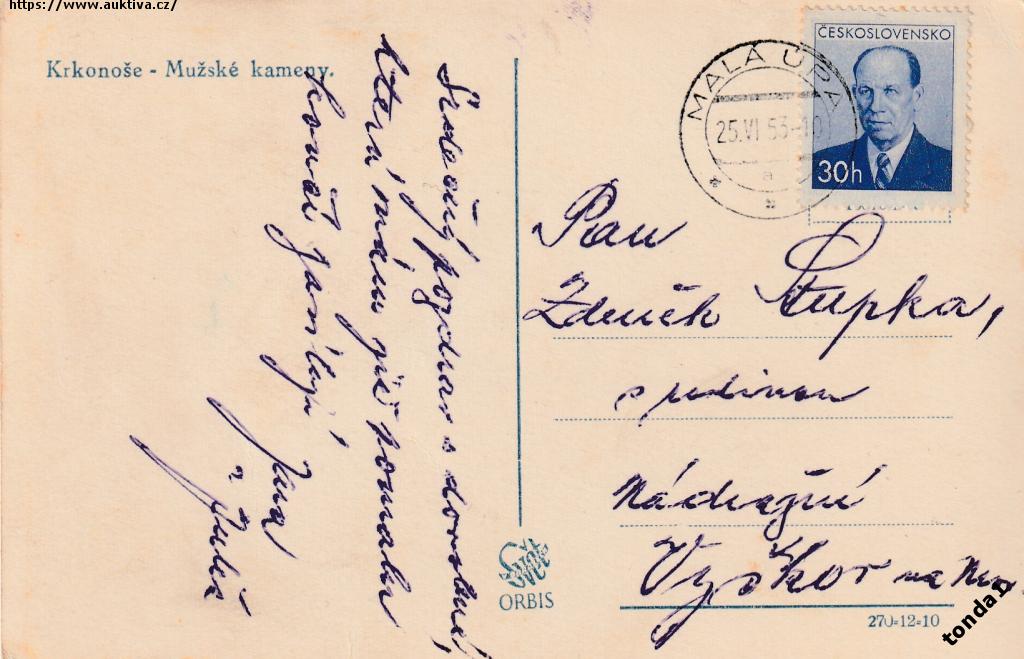 https://www.auktiva.cz/
Krkonoše - Mužské kameny.
Srdečný pozdrav s dovolené,
která nám již pomalu
končí zasílají
Jana
a
ČESKOSLOVENSKO
30h
MALÁ ÚPA
25.VI 53-10
a
Pan
Zdeněk Stupka,
s rodinou
Nádražní
Vyškov na Mor.
ORBIS
270-12-10
tonda1